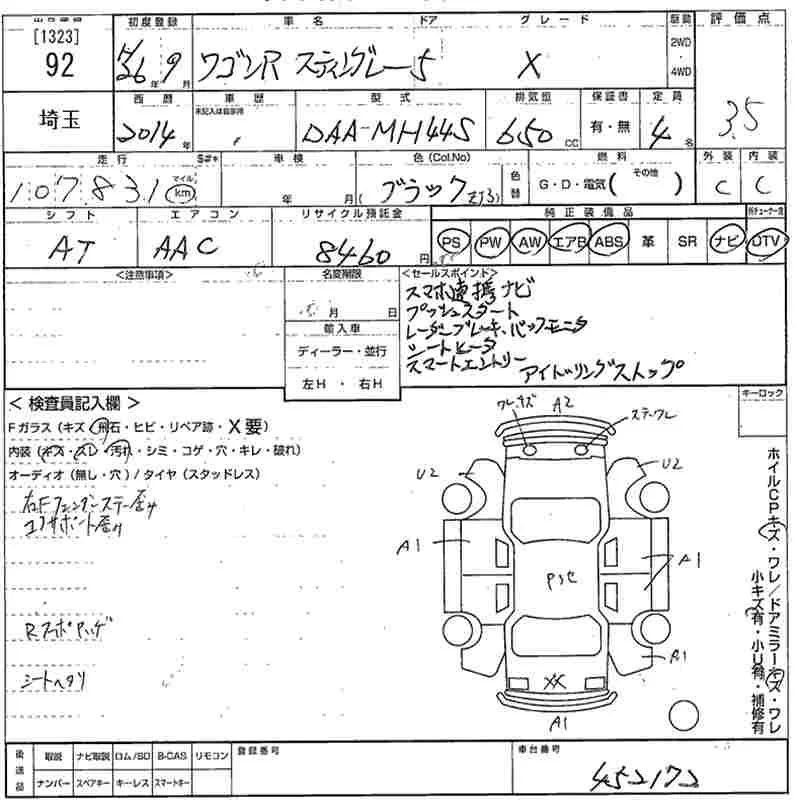 [1323] 初度登録 車名 ドア グレード 評価点
92 H26年9月 ワゴンR スティングレー 5 X 2WD・4WD 3.5
埼玉 西暦 車歴 型式 排気量 保証書 定員
未記入は自家用
2014年 DAA-MH44S 650cc 有・無 4名
走行 車検 色(Col.No) 燃料 外装 内装
107,831 マイル km 年 月 ブラック( ZJ3 ) 色替 G・D・電気( その他 ) C C
シフト エアコン リサイクル預託金 純正装備品
AT AAC 8460円 PS PW AW エアB ABS 革 SR ナビ DTV
<注意事項> 名変期限 <セールスポイント>
月 日
スマホ連携ナビ
プッシュスタート
輸入車 レーダーブレーキ、バックモニタ
シートヒータ
ディーラー・並行 スマートエントリー
アイドリングストップ
左H・右H
<検査員記入欄> キーロック
Fガラス(キズ・飛石・ヒビ・リペア跡・X要)
内装(キズ・スレ・汚れ・シミ・コゲ・穴・キレ・破れ)
オーディオ(無し・穴)/タイヤ(スタッドレス)
右Fフェンダーステー歪み
コアサポート歪み
Rスポアゲ
シートヘタリ
ワレ、キズ A2 ステーワレ
U2 U2
A1 A1
Pっセ
A1
XX
A1
ホイルCPキズ・ワレ/ドアミラーキズ・ワレ
小キズ有・小U有・補修有
後送品 取説 ナビ取説 ロム/SD B-CAS リモコン 登録番号 車台番号
ナンバー スペアキー キーレス スマートキー 452172